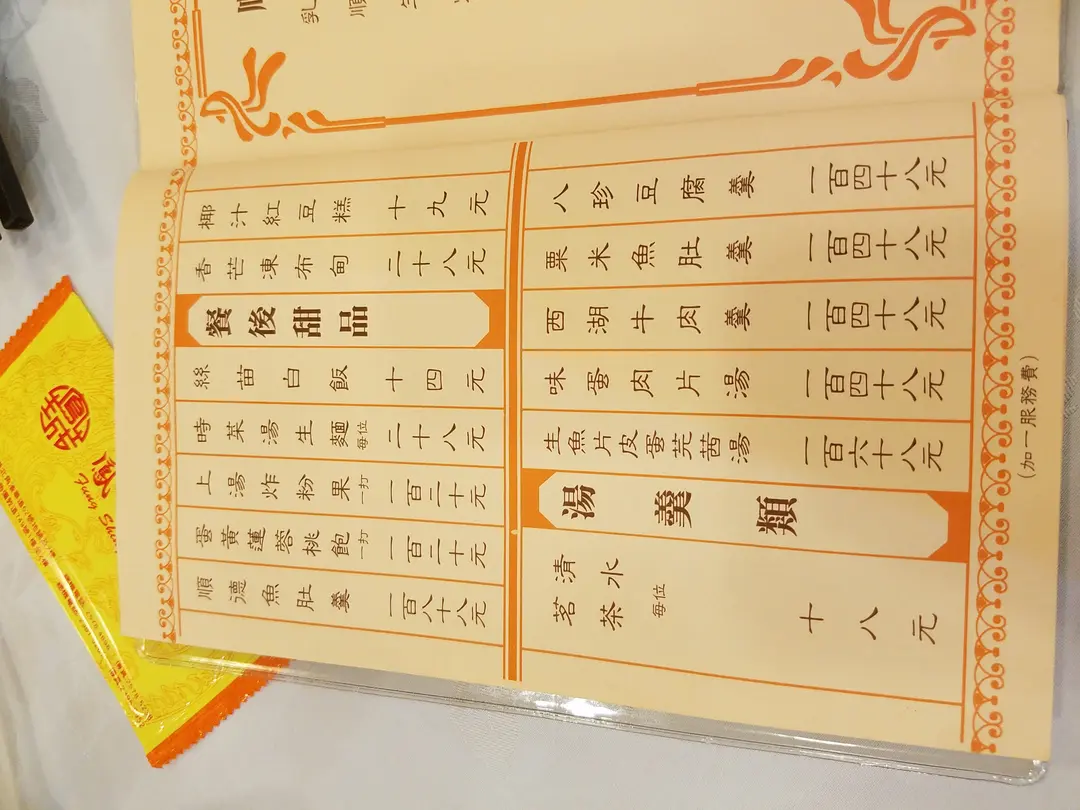 順德魚肚羹 一百八十八元
蛋黃蓮蓉桃飽 一打 一百二十元
上湯炸粉果 一打 一百二十元
時菜湯生麵 每位 二十八元
絲苗白飯 十四元
餐後甜品
香芒凍布甸 二十八元
椰汁紅豆糕 十九元
清水
茗茶
每位 十八元
湯羹類
生魚片皮蛋芫茜湯 一百六十八元
味蛋肉片湯 一百四十八元
西湖牛肉羹 一百四十八元
粟米魚肚羹 一百四十八元
八珍豆腐羹 一百四十八元
(加一服務費)